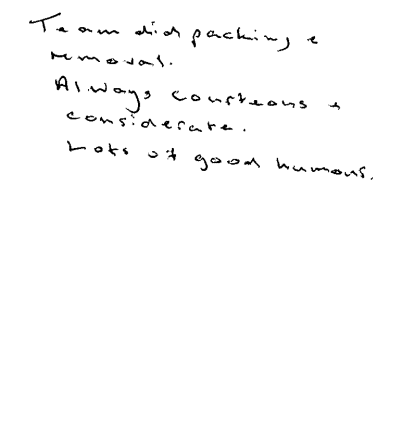 Team did packing &
removal.
Always courteous &
considerate.
Lots of good humour.